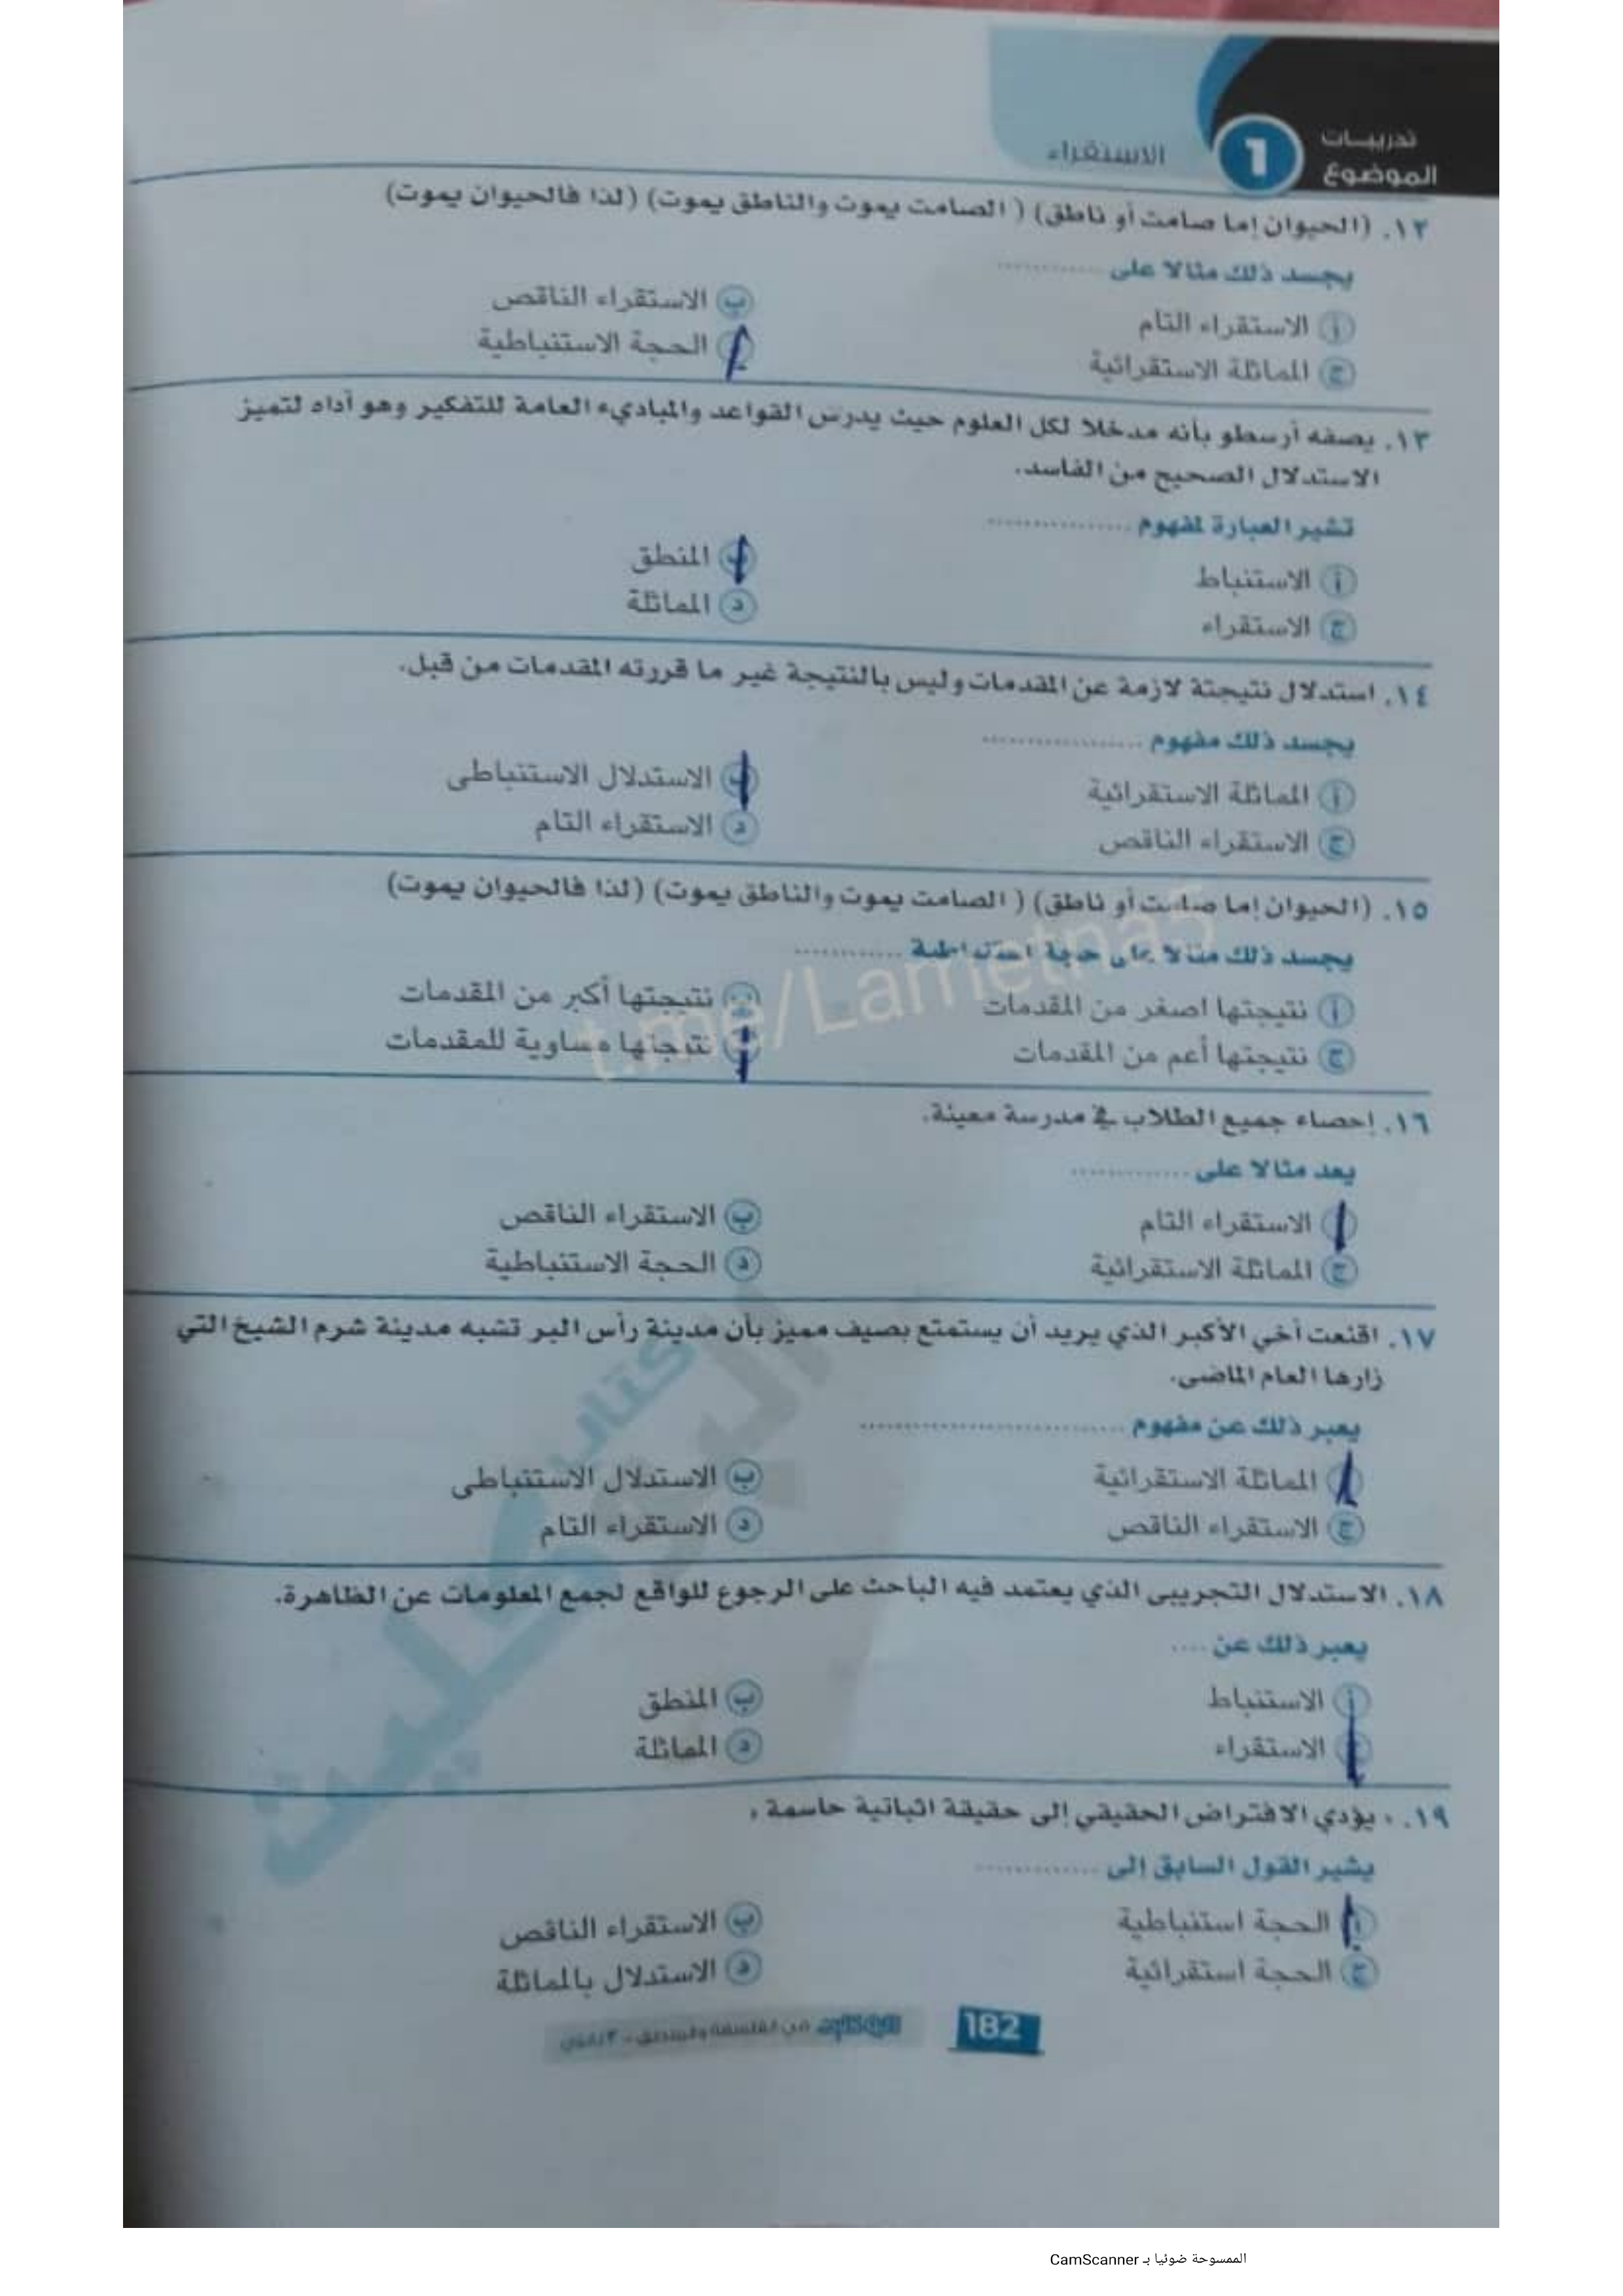 تدريبات
الموضوع
1
الاستقراء
١٢. (الحيوان إما صامت أو ناطق) ( الصامت يموت والناطق يموت) (لذا فالحيوان يموت)
يجسد ذلك مثالا على ............
أ الاستقراء التام
ب الاستقراء الناقص
ج المماثلة الاستقرائية
الحجة الاستنباطية
١٣. يصفه أرسطو بأنه مدخلا لكل العلوم حيث يدرس القواعد والمباديء العامة للتفكير وهو أداه لتميز
الاستدلال الصحيح من الفاسد.
تشير العبارة لمفهوم ................
أ الاستنباط
ب المنطق
ج الاستقراء
د المماثلة
١٤. استدلال نتيجتة لازمة عن المقدمات وليس بالنتيجة غير ما قررته المقدمات من قبل.
يجسد ذلك مفهوم ..................
أ المماثلة الاستقرائية
ب الاستدلال الاستنباطى
ج الاستقراء الناقص
د الاستقراء التام
١٥. (الحيوان إما صامت أو ناطق) ( الصامت يموت والناطق يموت) (لذا فالحيوان يموت)
يجسد ذلك مثالا على حجة استنباطية ............
أ نتيجتها اصغر من المقدمات
ب نتيجتها أكبر من المقدمات
ج نتيجتها أعم من المقدمات
نتيجتها مساوية للمقدمات
t.me/Lametna5
١٦. إحصاء جميع الطلاب في مدرسة معينة.
يعد مثالا على .............
الاستقراء التام
ب الاستقراء الناقص
ج المماثلة الاستقرائية
د الحجة الاستنباطية
١٧. اقنعت أخي الأكبر الذي يريد أن يستمتع بصيف مميز بأن مدينة رأس البر تشبه مدينة شرم الشيخ التي
زارها العام الماضى.
يعبر ذلك عن مفهوم ..............................
المماثلة الاستقرائية
ب الاستدلال الاستنباطى
ج الاستقراء الناقص
د الاستقراء التام
١٨. الاستدلال التجريبى الذي يعتمد فيه الباحث على الرجوع للواقع لجمع المعلومات عن الظاهرة.
يعبر ذلك عن ....
أ الاستنباط
ب المنطق
الاستقراء
د المماثلة
١٩. ، يؤدي الافتراض الحقيقي إلى حقيقة اثباتية حاسمة ،
يشير القول السابق إلى ..............
أ الحجة استنباطية
ب الاستقراء الناقص
ج الحجة استقرائية
د الاستدلال بالمماثلة
كتاب
182
في الفلسفة والمنطق - ٣ ثانوي
الممسوحة ضوئيا بـ CamScanner